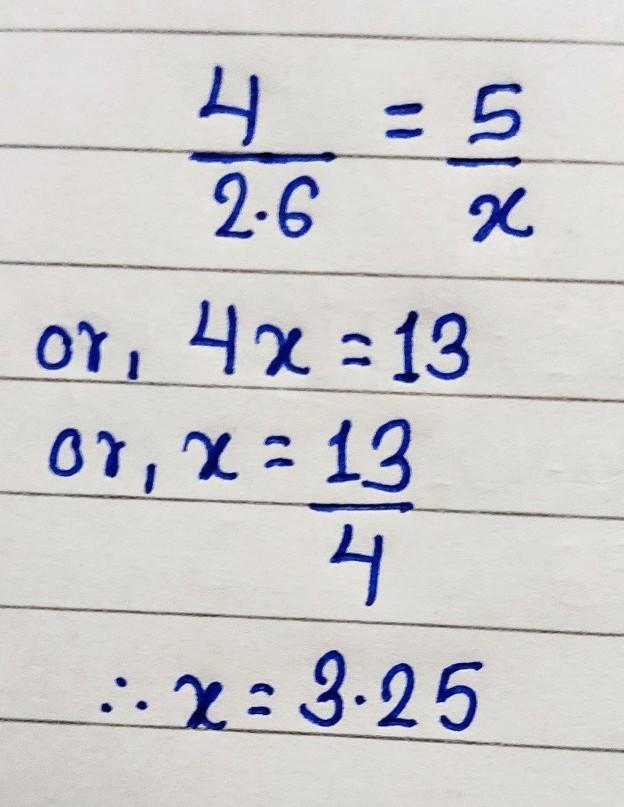 4/2.6 = 5/x
or, 4x = 13
or, x = 13/4
∴ x = 3.25